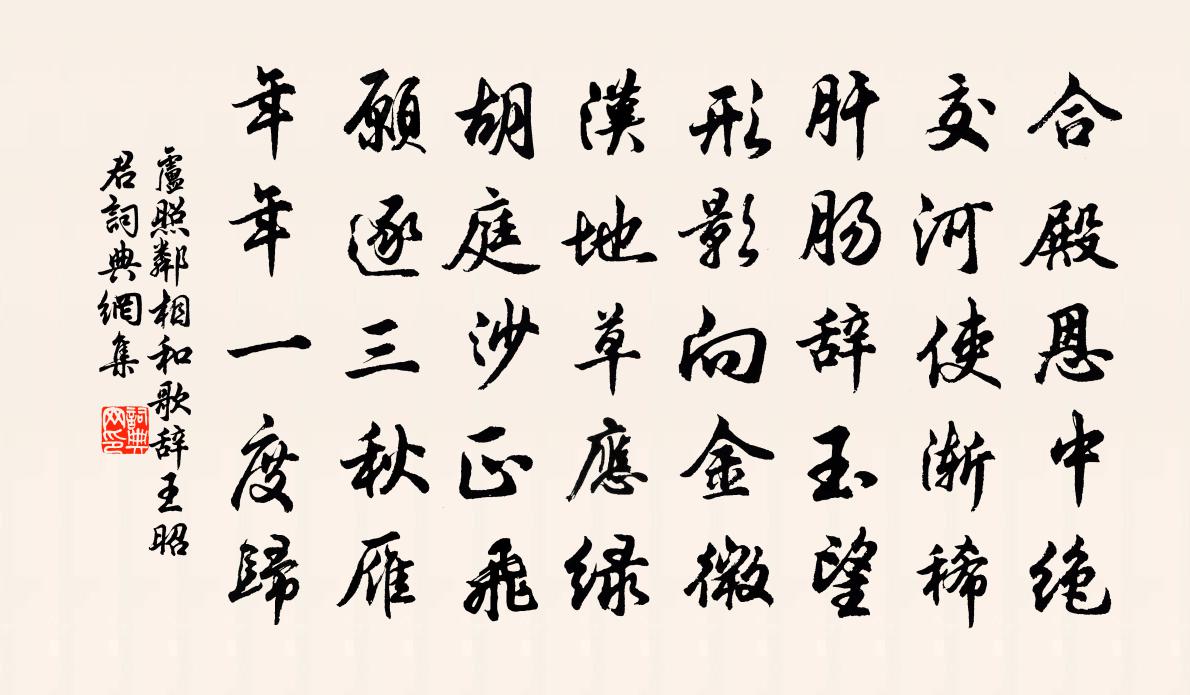 合殿恩中绝
交河使渐稀
肝肠辞玉望
形影向金微
漢地草應绿
胡庭沙正飛
願逐三秋雁
年年一度歸
盧照鄰相和歌辞王昭
君詞典網集
詞典
网印